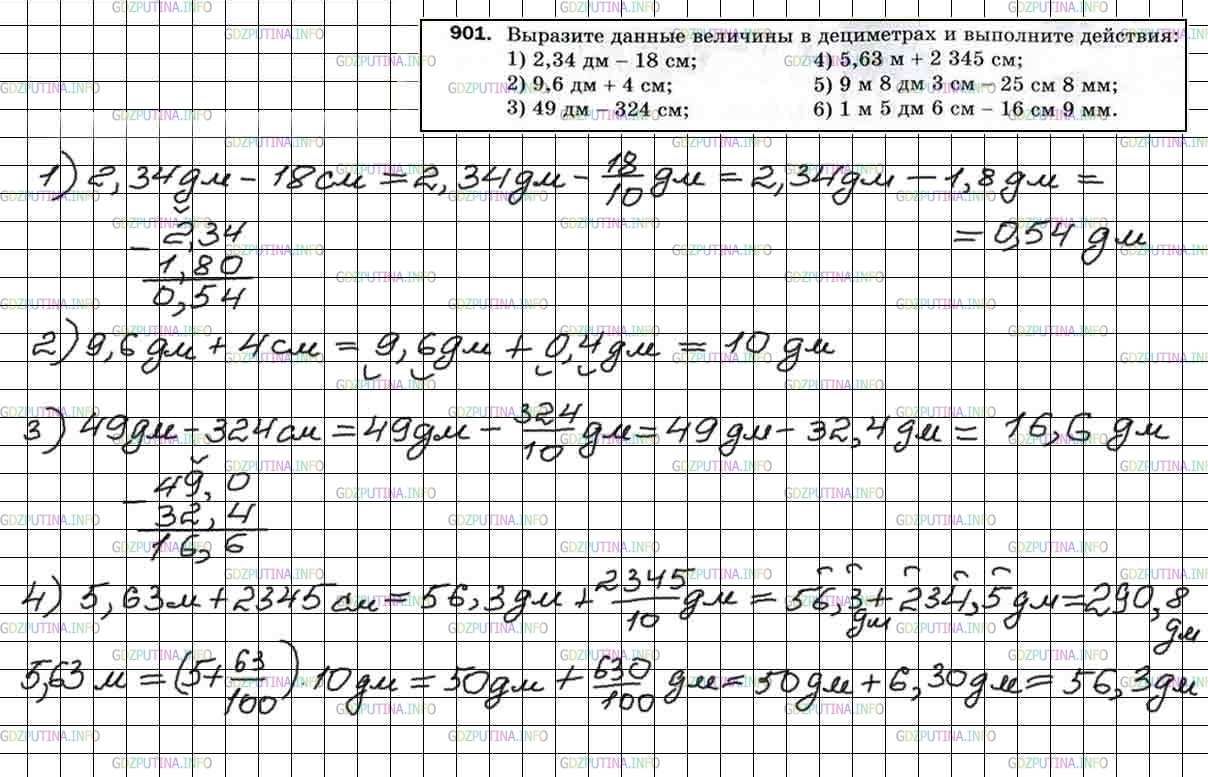 901. Выразите данные величины в дециметрах и выполните действия:
1) 2,34 дм – 18 см; 4) 5,63 м + 2 345 см;
2) 9,6 дм + 4 см; 5) 9 м 8 дм 3 см – 25 см 8 мм;
3) 49 дм – 324 см; 6) 1 м 5 дм 6 см – 16 см 9 мм.
1) 2,34дм - 18см = 2,34дм - 18/10 дм = 2,34дм - 1,8дм =
= 0,54 дм
- 2,34
1,80
0,54
2) 9,6дм + 4см = 9,6дм + 0,4дм = 10 дм
3) 49дм - 324см = 49дм - 324/10 дм = 49дм - 32,4дм = 16,6 дм
- 49,0
32,4
16,6
4) 5,63м + 2345см = 56,3дм + 2345/10 дм = 56,3 дм + 234,5дм = 290,8 дм
5,63 м = (5 + 63/100) · 10дм = 50дм + 630/100 дм = 50дм + 6,30дм = 56,3дм
GDZPUTINA.INFO